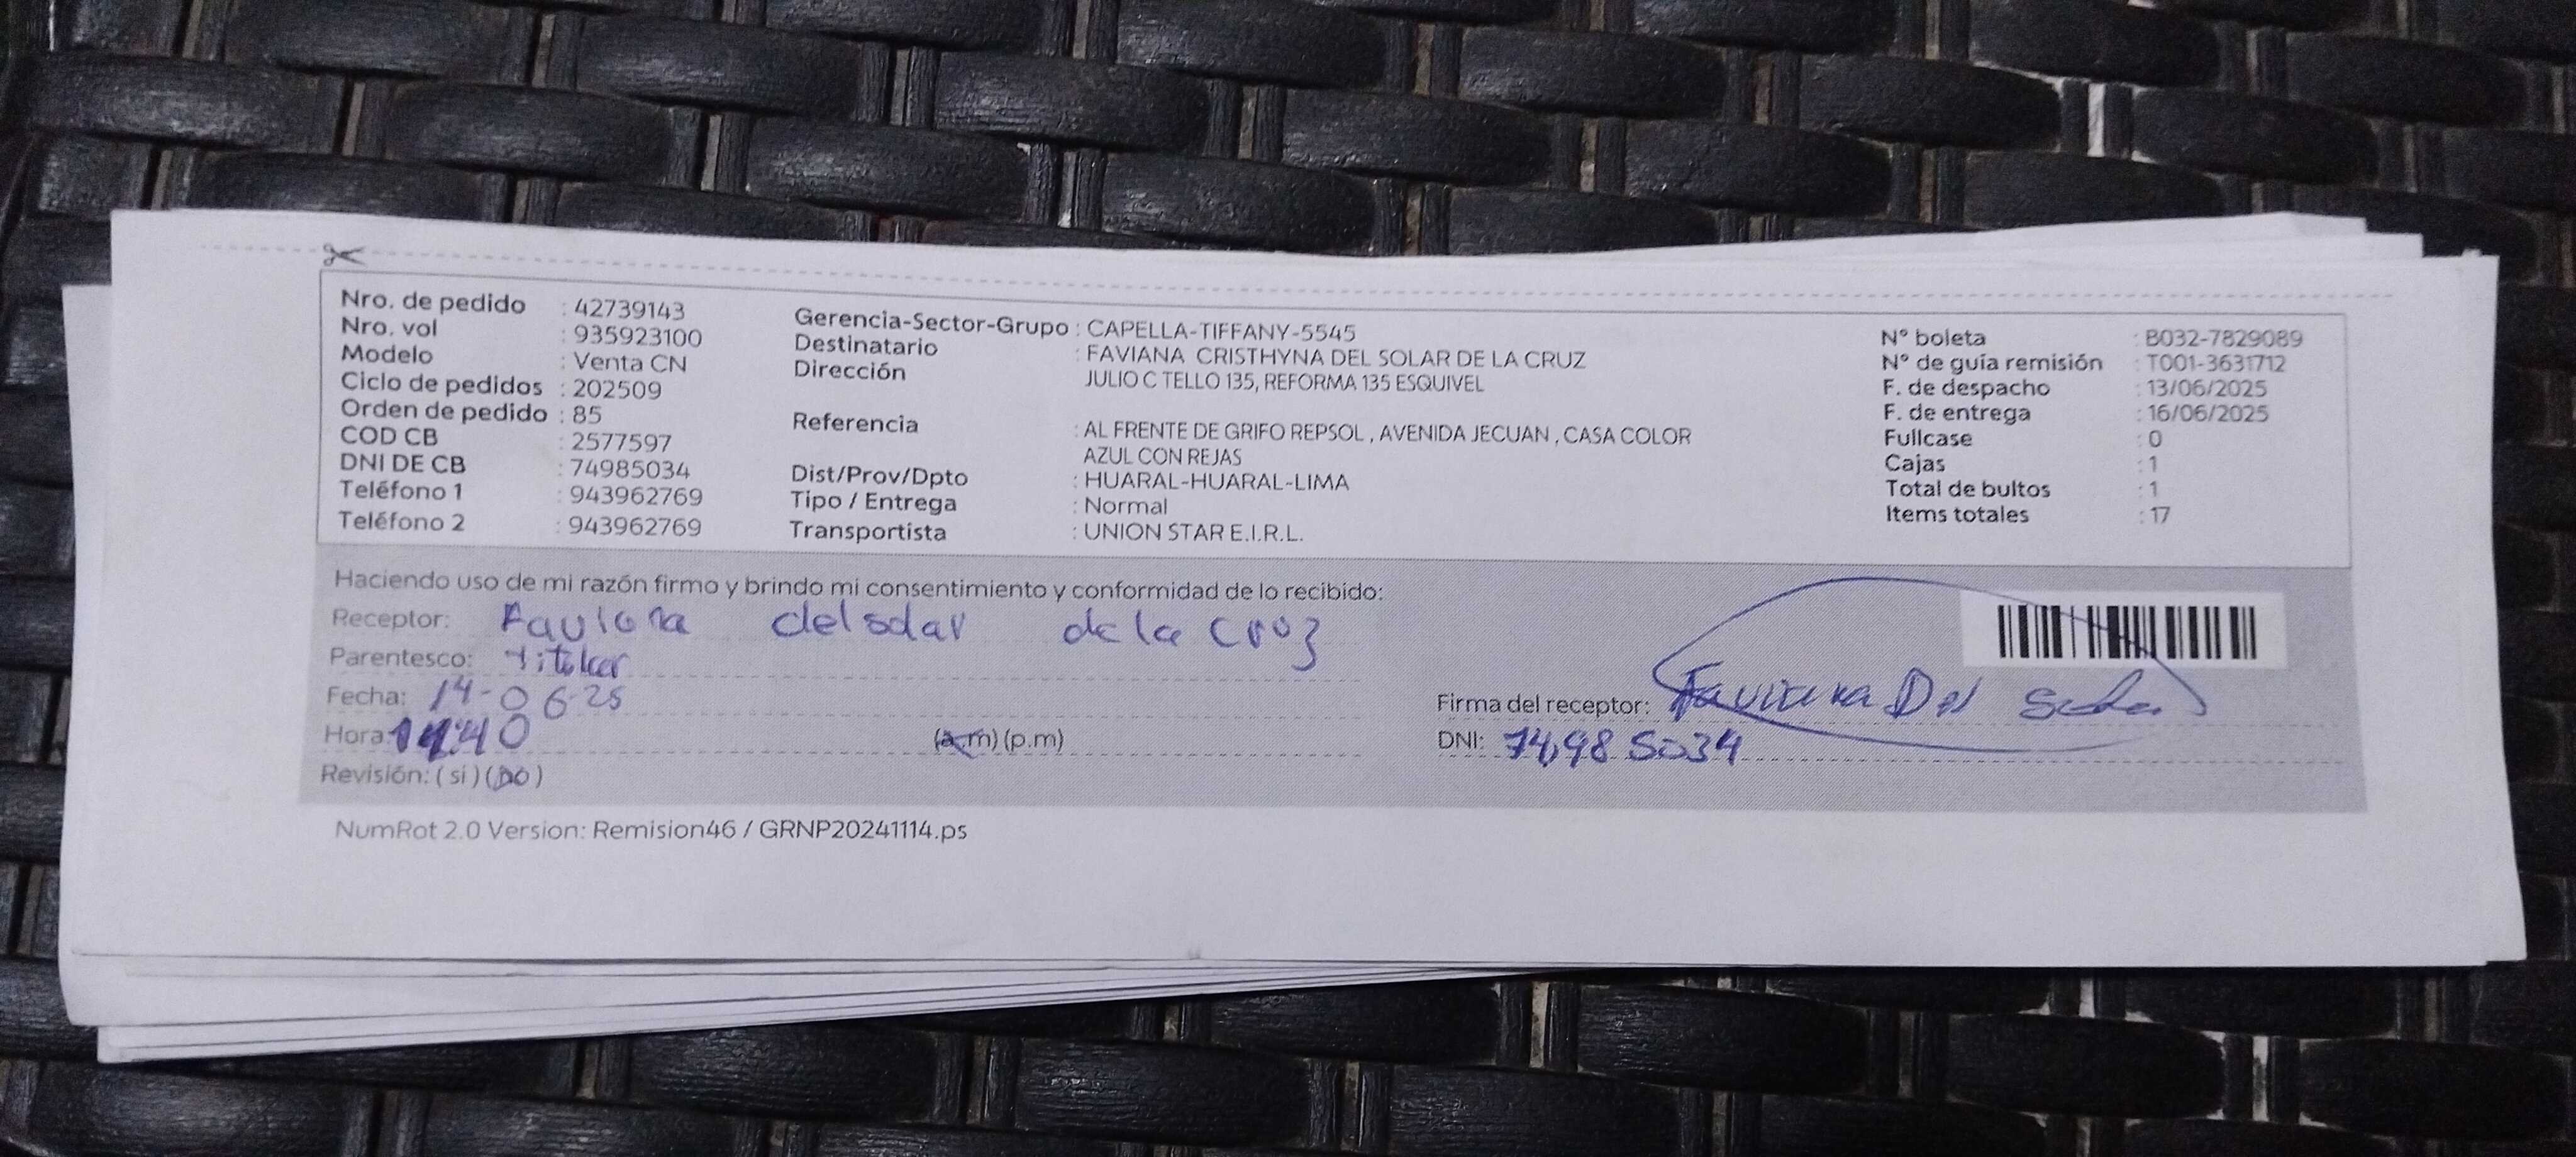 Nro. de pedido : 42739143
Nro. vol : 935923100
Modelo : Venta CN
Ciclo de pedidos : 202509
Orden de pedido : 85
COD CB : 2577597
DNI DE CB : 74985034
Teléfono 1 : 943962769
Teléfono 2 : 943962769
Gerencia-Sector-Grupo : CAPELLA-TIFFANY-5545
Destinatario : FAVIANA CRISTHYNA DEL SOLAR DE LA CRUZ
Dirección JULIO C TELLO 135, REFORMA 135 ESQUIVEL
Referencia : AL FRENTE DE GRIFO REPSOL , AVENIDA JECUAN , CASA COLOR
AZUL CON REJAS
Dist/Prov/Dpto : HUARAL-HUARAL-LIMA
Tipo / Entrega : Normal
Transportista : UNION STAR E.I.R.L.
N° boleta : B032-7829089
N° de guía remisión : T001-3631712
F. de despacho : 13/06/2025
F. de entrega : 16/06/2025
Fullcase : 0
Cajas : 1
Total de bultos : 1
Items totales : 17
Haciendo uso de mi razón firmo y brindo mi consentimiento y conformidad de lo recibido:
Receptor: Faviana del solar de la Cruz
Parentesco: titular
Fecha: 14-06-25
Hora: (a.m) (p.m)
Revisión: ( si ) (no)
Firma del receptor: Faviana Del Solar
DNI: 74985034
NumRot 2.0 Version: Remision46 / GRNP20241114.ps